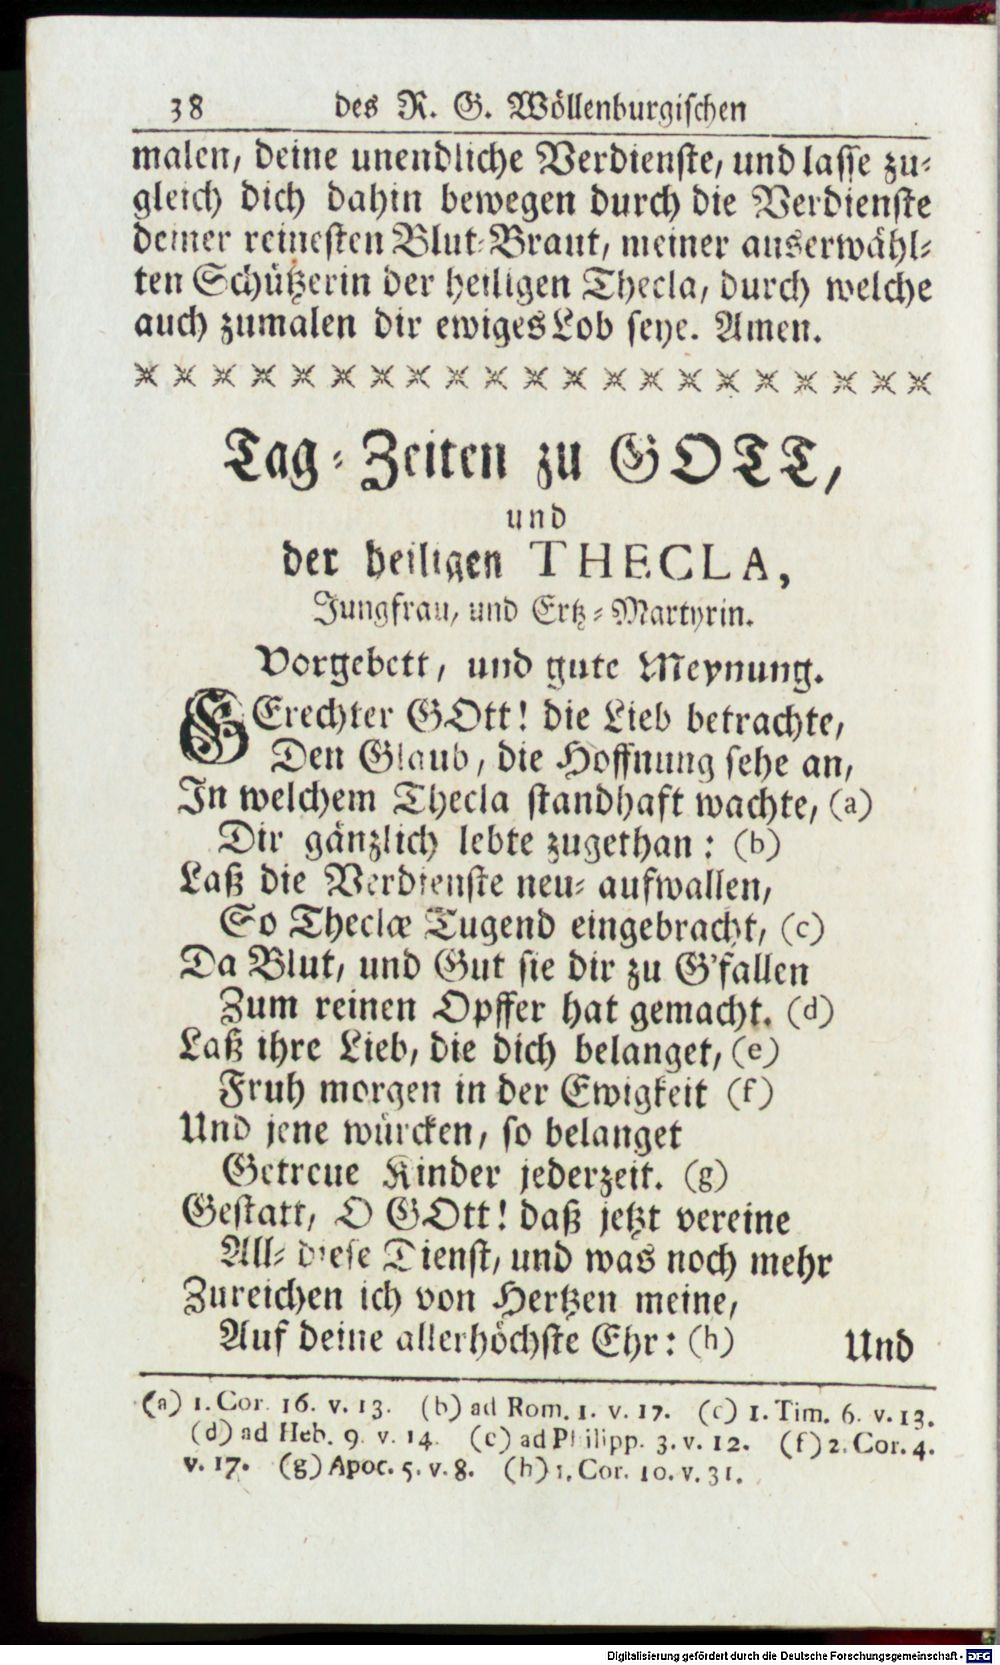 38 des R. G. Wöllenburgischen
malen, deine unendliche Verdienste, und lasse zu-
gleich dich dahin bewegen durch die Verdienste
deiner reinesten Blut-Braut, meiner auserwähl-
ten Schützerin der heiligen Thecla, durch welche
auch zumalen dir ewiges Lob seye. Amen.
Tag-Zeiten zu GOTT,
und
der heiligen THECLA,
Jungfrau, und Ertz-Martyrin.
Vorgebett, und gute Meynung.
GErechter GOtt! die Lieb betrachte,
Den Glaub, die Hoffnung sehe an,
In welchem Thecla standhaft wachte, (a)
Dir gänzlich lebte zugethan: (b)
Laß die Verdienste neu-aufwallen,
So Theclæ Tugend eingebracht, (c)
Da Blut, und Gut sie dir zu G'fallen
Zum reinen Opffer hat gemacht. (d)
Laß ihre Lieb, die dich belanget, (e)
Fruh morgen in der Ewigkeit (f)
Und jene würcken, so belanget
Getreue Kinder jederzeit. (g)
Gestatt, O GOtt! daß jetzt vereine
All-diese Dienst, und was noch mehr
Zureichen ich von Hertzen meine,
Auf deine allerhöchste Ehr: (h)
Und
(a) 1. Cor. 16. v. 13. (b) ad Rom. 1. v. 17. (c) 1. Tim. 6. v. 13.
(d) ad Heb. 9. v. 14. (e) ad Philipp. 3. v. 12. (f) 2. Cor. 4.
v. 17. (g) Apoc. 5. v. 8. (h) 1. Cor. 10. v. 31.
Digitalisierung gefördert durch die Deutsche Forschungsgemeinschaft - DFG